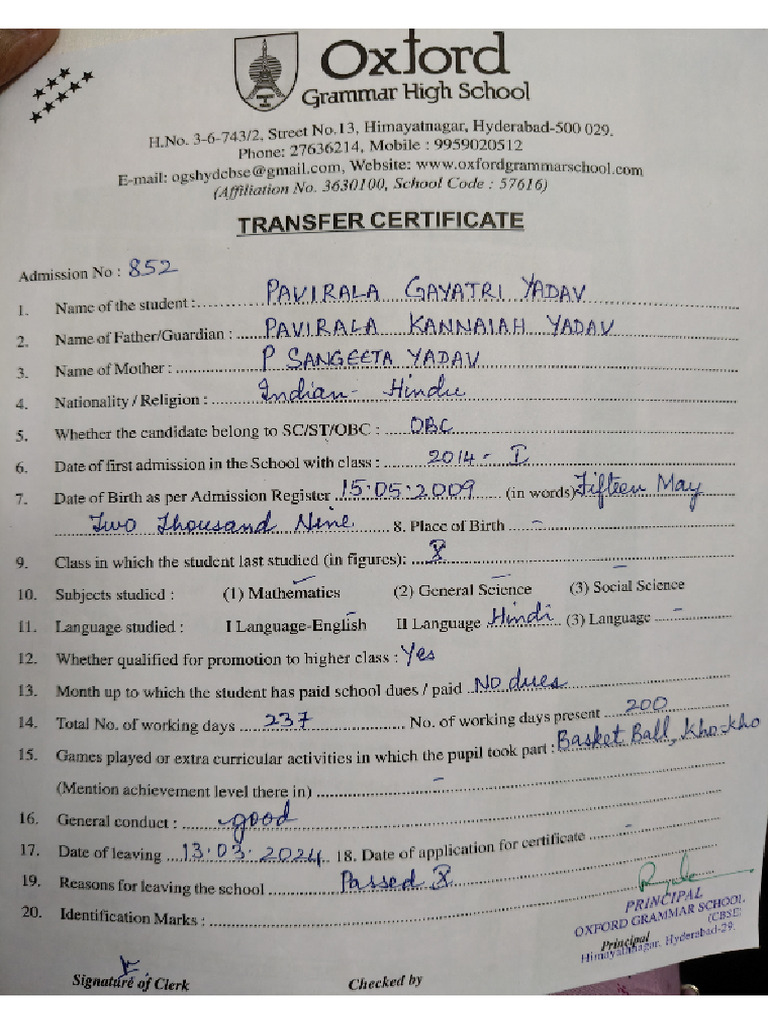 Oxford
Grammar High School
H.No. 3-6-743/2, Street No.13, Himayatnagar, Hyderabad-500 029.
Phone: 27636214, Mobile : 9959020512
E-mail: ogshydcbse@gmail.com, Website: www.oxfordgrammarschool.com
(Affiliation No. 3630100, School Code : 57616)
TRANSFER CERTIFICATE
Admission No : 852
1. Name of the student : PAVIRALA GAYATRI YADAV
2. Name of Father/Guardian : PAVIRALA KANNAIAH YADAV
3. Name of Mother : P SANGEETA YADAV
4. Nationality / Religion : Indian - Hindu
5. Whether the candidate belong to SC/ST/OBC : OBC
6. Date of first admission in the School with class : 2014 - I
7. Date of Birth as per Admission Register 15.05.2009 (in words) Fifteen May
Two Thousand Nine 8. Place of Birth -
9. Class in which the student last studied (in figures): X
10. Subjects studied : (1) Mathematics (2) General Science (3) Social Science
11. Language studied : I Language-English II Language Hindi (3) Language -
12. Whether qualified for promotion to higher class : Yes
13. Month up to which the student has paid school dues / paid No dues
14. Total No. of working days 237 No. of working days present 200
15. Games played or extra curricular activities in which the pupil took part : Basket Ball, Kho-kho
(Mention achievement level there in) -
16. General conduct : good
17. Date of leaving 13.03.2024 18. Date of application for certificate -
19. Reasons for leaving the school Passed X
20. Identification Marks :
PRINCIPAL
OXFORD GRAMMAR SCHOOL
(CBSE)
Principal
Himayatnagar, Hyderabad-29.
Signature of Clerk Checked by